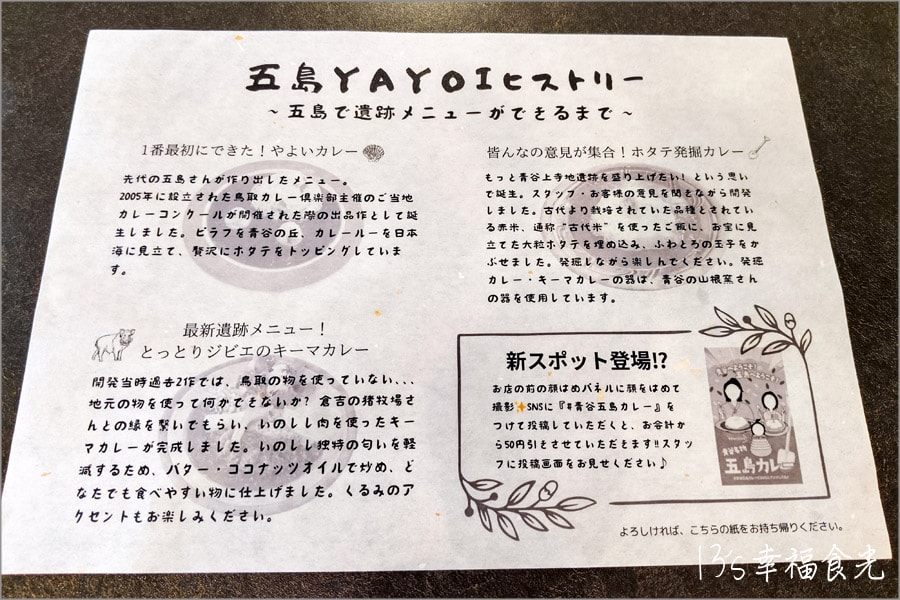 五島YAYOIヒストリー
~五島で遺跡メニューができるまで~
1番最初にできた!やよいカレー
先代の五島さんが作り出したメニュー。
2005年に設立された鳥取カレー倶楽部主催のご当地
カレーコンクールが開催された際の出品作として誕
生しました。ピラフを青谷の丘、カレールーを日本
海に見立て、贅沢にホタテをトッピングしていま
す。
皆んなの意見が集合!ホタテ発掘カレー
もっと青谷上寺地遺跡を盛り上げたい!という思い
で誕生。スタッフ・お客様の意見を聞きながら開発
しました。古代より栽培されていた品種とされてい
る赤米、通称“古代米”を使ったご飯に、お宝に見
立てた大粒ホタテを埋め込み、ふわとろの玉子をか
ぶせました。発掘しながら楽しんでください。発掘
カレー・キーマカレーの器は、青谷の山根窯さん
の器を使用しています。
最新遺跡メニュー!
とっとりジビエのキーマカレー
開発当時過去2作では、鳥取の物を使っていない...
地元の物を使って何かできないか?倉吉の猪牧場さ
んとの縁を繋いでもらい、いのしし肉を使ったキー
マカレーが完成しました。いのしし独特の匂いを軽
減するため、バター・ココナッツオイルで炒め、ど
なたでも食べやすい物に仕上げました。くるみのア
クセントもお楽しみください。
新スポット登場!?
お店の前の顔はめパネルに顔をはめて
撮影✨SNSに『#青谷五島カレー』を
つけて投稿していただくと、お会計か
ら50円引きさせていただきます!!スタッ
フに投稿画面をお見せください♪
青谷名物
五島カレー
よろしければ、こちらの紙をお持ち帰りください。
13's幸福食光